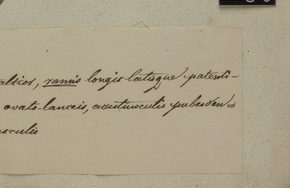 altior, ramis longis lateque patenti-
ovato-lanceis, acutiusculis puberulen-
usculis